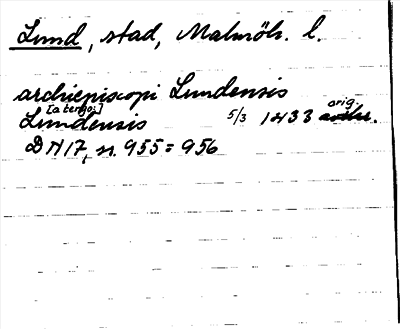 Lund, stad, Malmöh. l.
archiepiscopi Lundensis
[a tergo:] orig.
Lundensis 5/3 1433
DN 17, n. 955 = 956